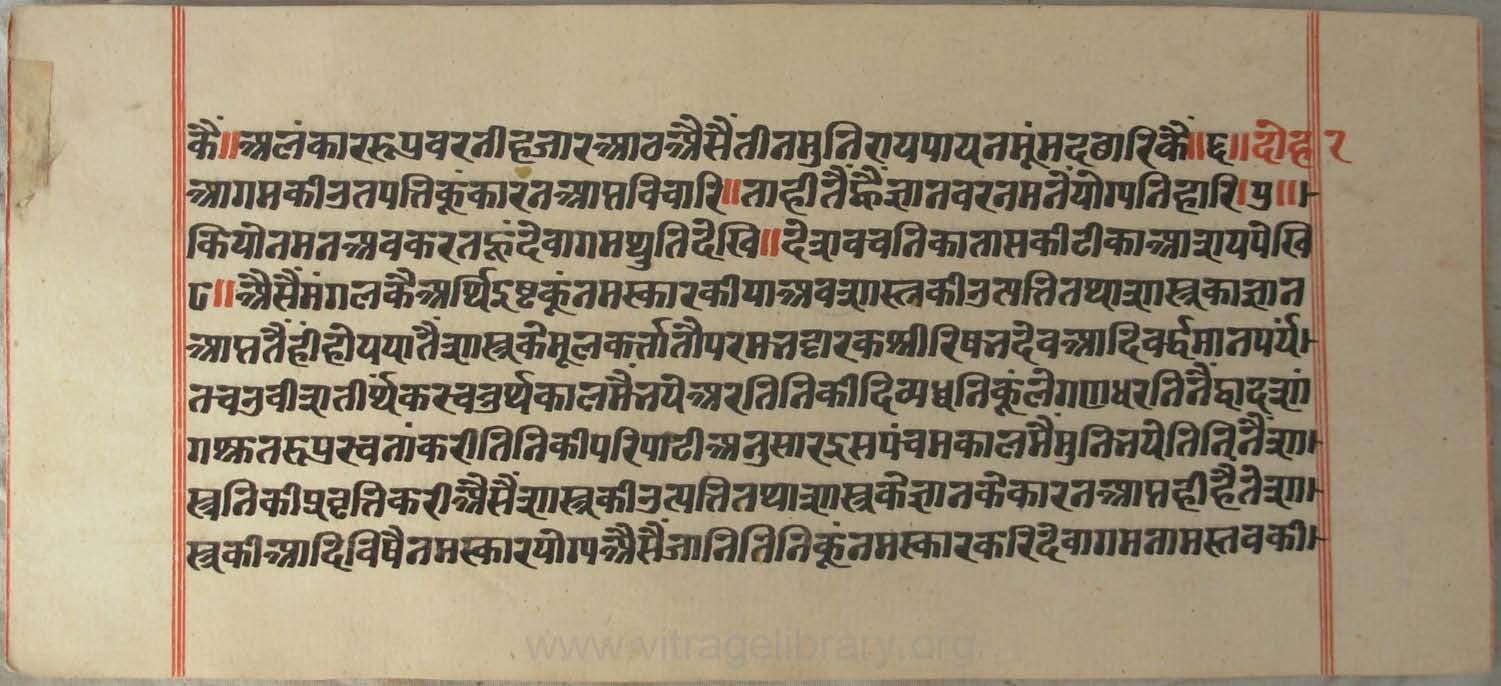 कैं॥अलंकाररूपवरतीहजारआठअैसैंतीनमुनिरायपायनमूंमदठारिकैं॥६॥दोहर
आगमकीउतपत्तिकूंकारनआप्तविचारि॥ताहीतैंह्वैज्ञानवरनमनेंयोग्यनिहारि।५॥
कियोनमनअवकरतहूंदेवागमथुतिदेखि॥देशवचनिकातासकीटीकाआशयपेखि
८॥अैसैंमंगलकैअर्थिइष्टकूंनमस्कारकीयाअवशास्त्रकीउत्पत्तितथाशास्त्रकाज्ञान
आप्ततैंहींहोययातैंशास्त्रकेमूलकर्त्तातौपरमभट्टारकश्रीरिषभदेवआदिवर्द्धमानपर्यं
तचउवीशतीर्थंकरचतुर्थकालमैंभयेअरतिनिकीदिव्यध्वनिकूंलेगणधरनिनैंद्वादशां
गश्रुतरूपरचनांकरीतिनिकीपरिपाटीअनुसारइसपंचमकालमैंमुनिभयेतिनिनैंशा
स्त्रनिकीप्रवृत्तिकरीअैसैंशास्त्रकीउत्पत्तितथाशास्त्रकेज्ञानकेकारनआप्तहीहैंतेशा
स्त्रकीआदिविषैनमस्कारयोग्यअैसैंजानितिनिकूंनमस्कारकरिदेवागमनामस्तवकी
www.vitragelibrary.org